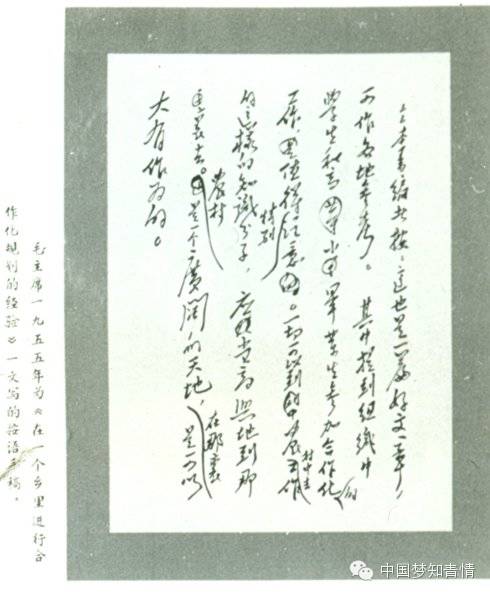 本書编者按:這也是一篇好文章,
可作各地参考。其中提到组织中
學生和高小畢業生参加合作化的
工作,值得特别注意。一切可以到農村中去工作
的這樣的知識分子,應當高興地到那
裏去。農村是一个廣闊的天地,在那裏是可以
大有作为的。
毛主席一九五五年为《在一个乡里进行合
作化规划的经验》一文写的按语手稿。
中国梦知青情